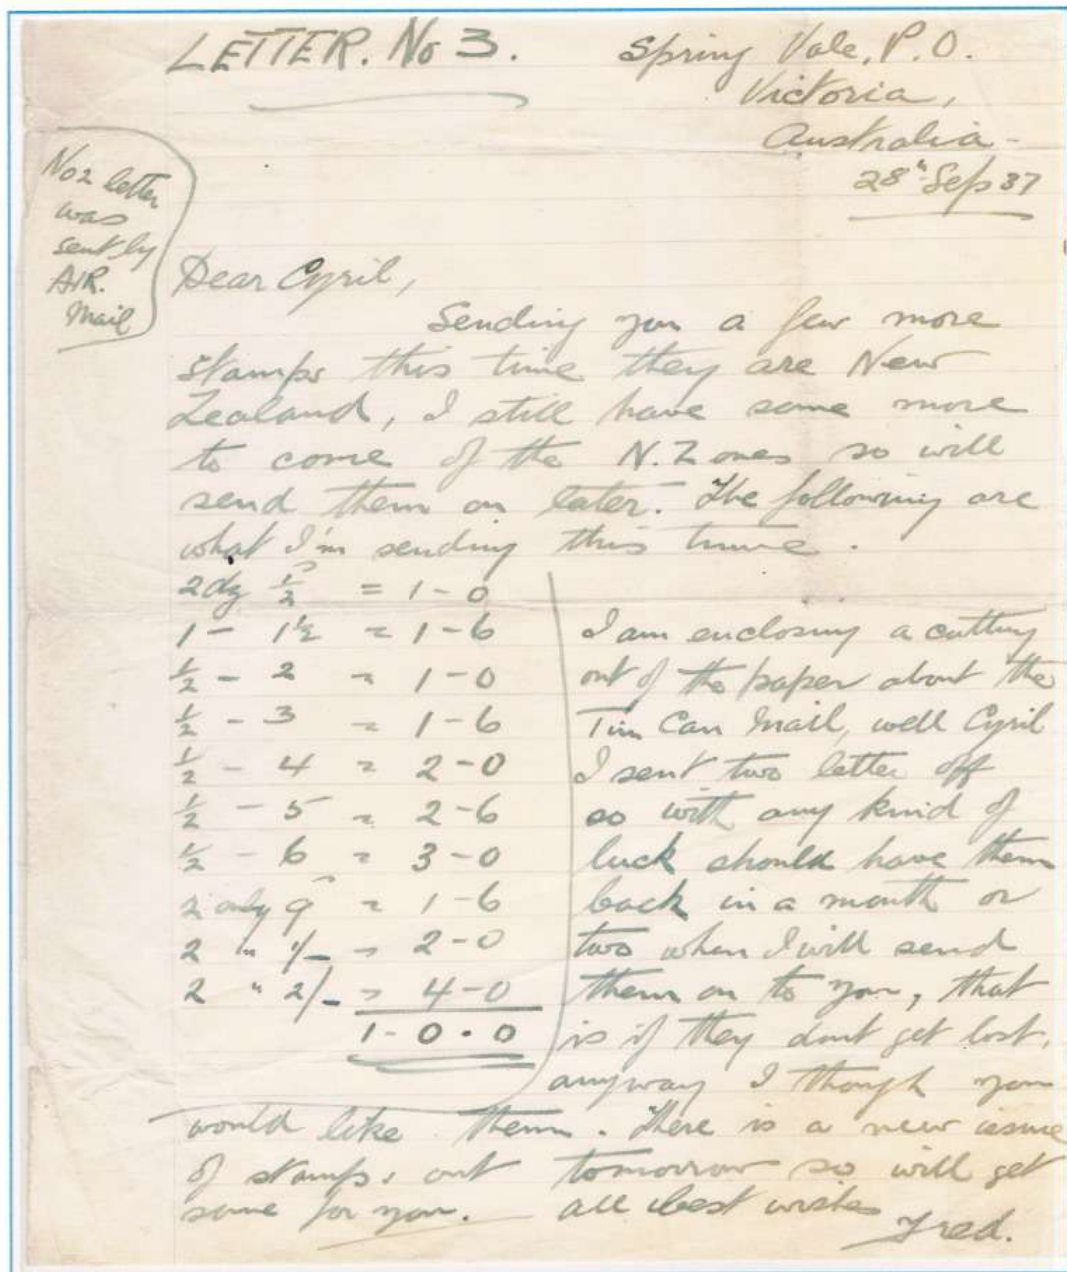 LETTER. No 3.
Spring Vale, P.O.
Victoria,
Australia -
28" Sep 37
No 2 letter
was
sent by
AIR.
Mail
Dear Cyril,
Sending you a few more
stamps this time they are New
Zealand, I still have some more
to come of the N.Z ones so will
send them on later. The following are
what I'm sending this time.
2 dz ½ = 1-0
1 - 1½ = 1-6
½ - 2 = 1-0
½ - 3 = 1-6
½ - 4 = 2-0
½ - 5 = 2-6
½ - 6 = 3-0
2 only 9 = 1-6
2 " 1/- = 2-0
2 " 2/- = 4-0
1-0-0
I am enclosing a cutting
out of the paper about the
Tin Can Mail, well Cyril
I sent two letter off
so with any kind of
luck should have them
back in a month or
two when I will send
them on to you, that
is if they dont get lost,
anyway I though you
would like them. There is a new issue
of stamps out tomorrow so will get
some for you. all best wishes
Fred.